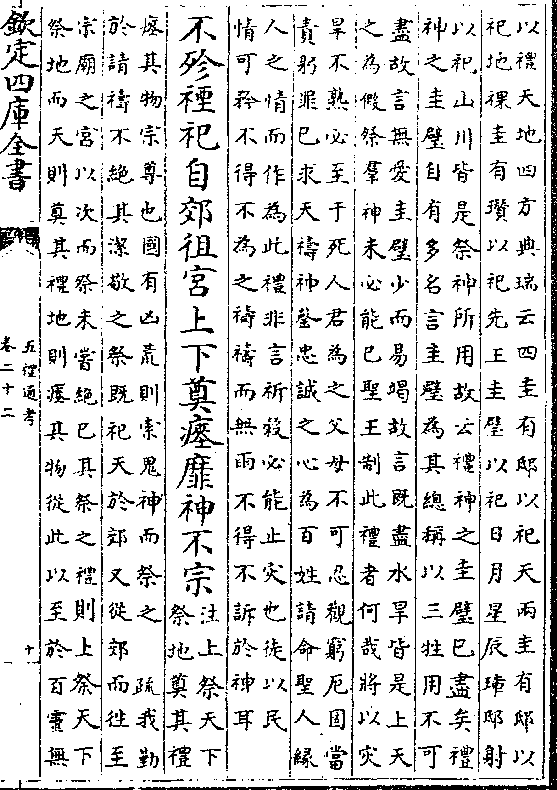 以禮天地四方典瑞云四圭有邸以祀天兩圭有邸以
祀地祼圭有瓚以祀先王圭璧以祀日月星辰璋邸射
以祀山川皆是祭神所用故云禮神之圭璧已盡矣禮
神之圭璧自有多名言圭璧為其總稱以三牲用不可
盡故言無愛圭璧少而易竭故言既盡水旱皆是上天
之為假祭羣神未必能已聖王制此禮者何哉將以災
旱不熟必至于死人君為之父母不可忍觀窮厄固當
責躬罪已求天禱神罄忠誠之心為百姓請命聖人緣
人之情而作為此禮非言祈殺必能止災也徒以民
情可矜不得不為之禱禱而無雨不得不訴於神耳
不殄禋祀自郊徂宮上下奠瘞靡神不宗
注上祭天下
祭地奠其禮
瘞其物宗尊也國有凶荒則索鬼神而祭之 疏我勤
於請禱不絕其潔敬之祭既祀天於郊又從郊而徃至
宗廟之宮以次而祭未嘗絕已其祭之禮則上祭天下
祭地而天則奠其禮地則瘞其物從此以至於百靈無
欽定四庫全書
五禮通考
卷二十二
十